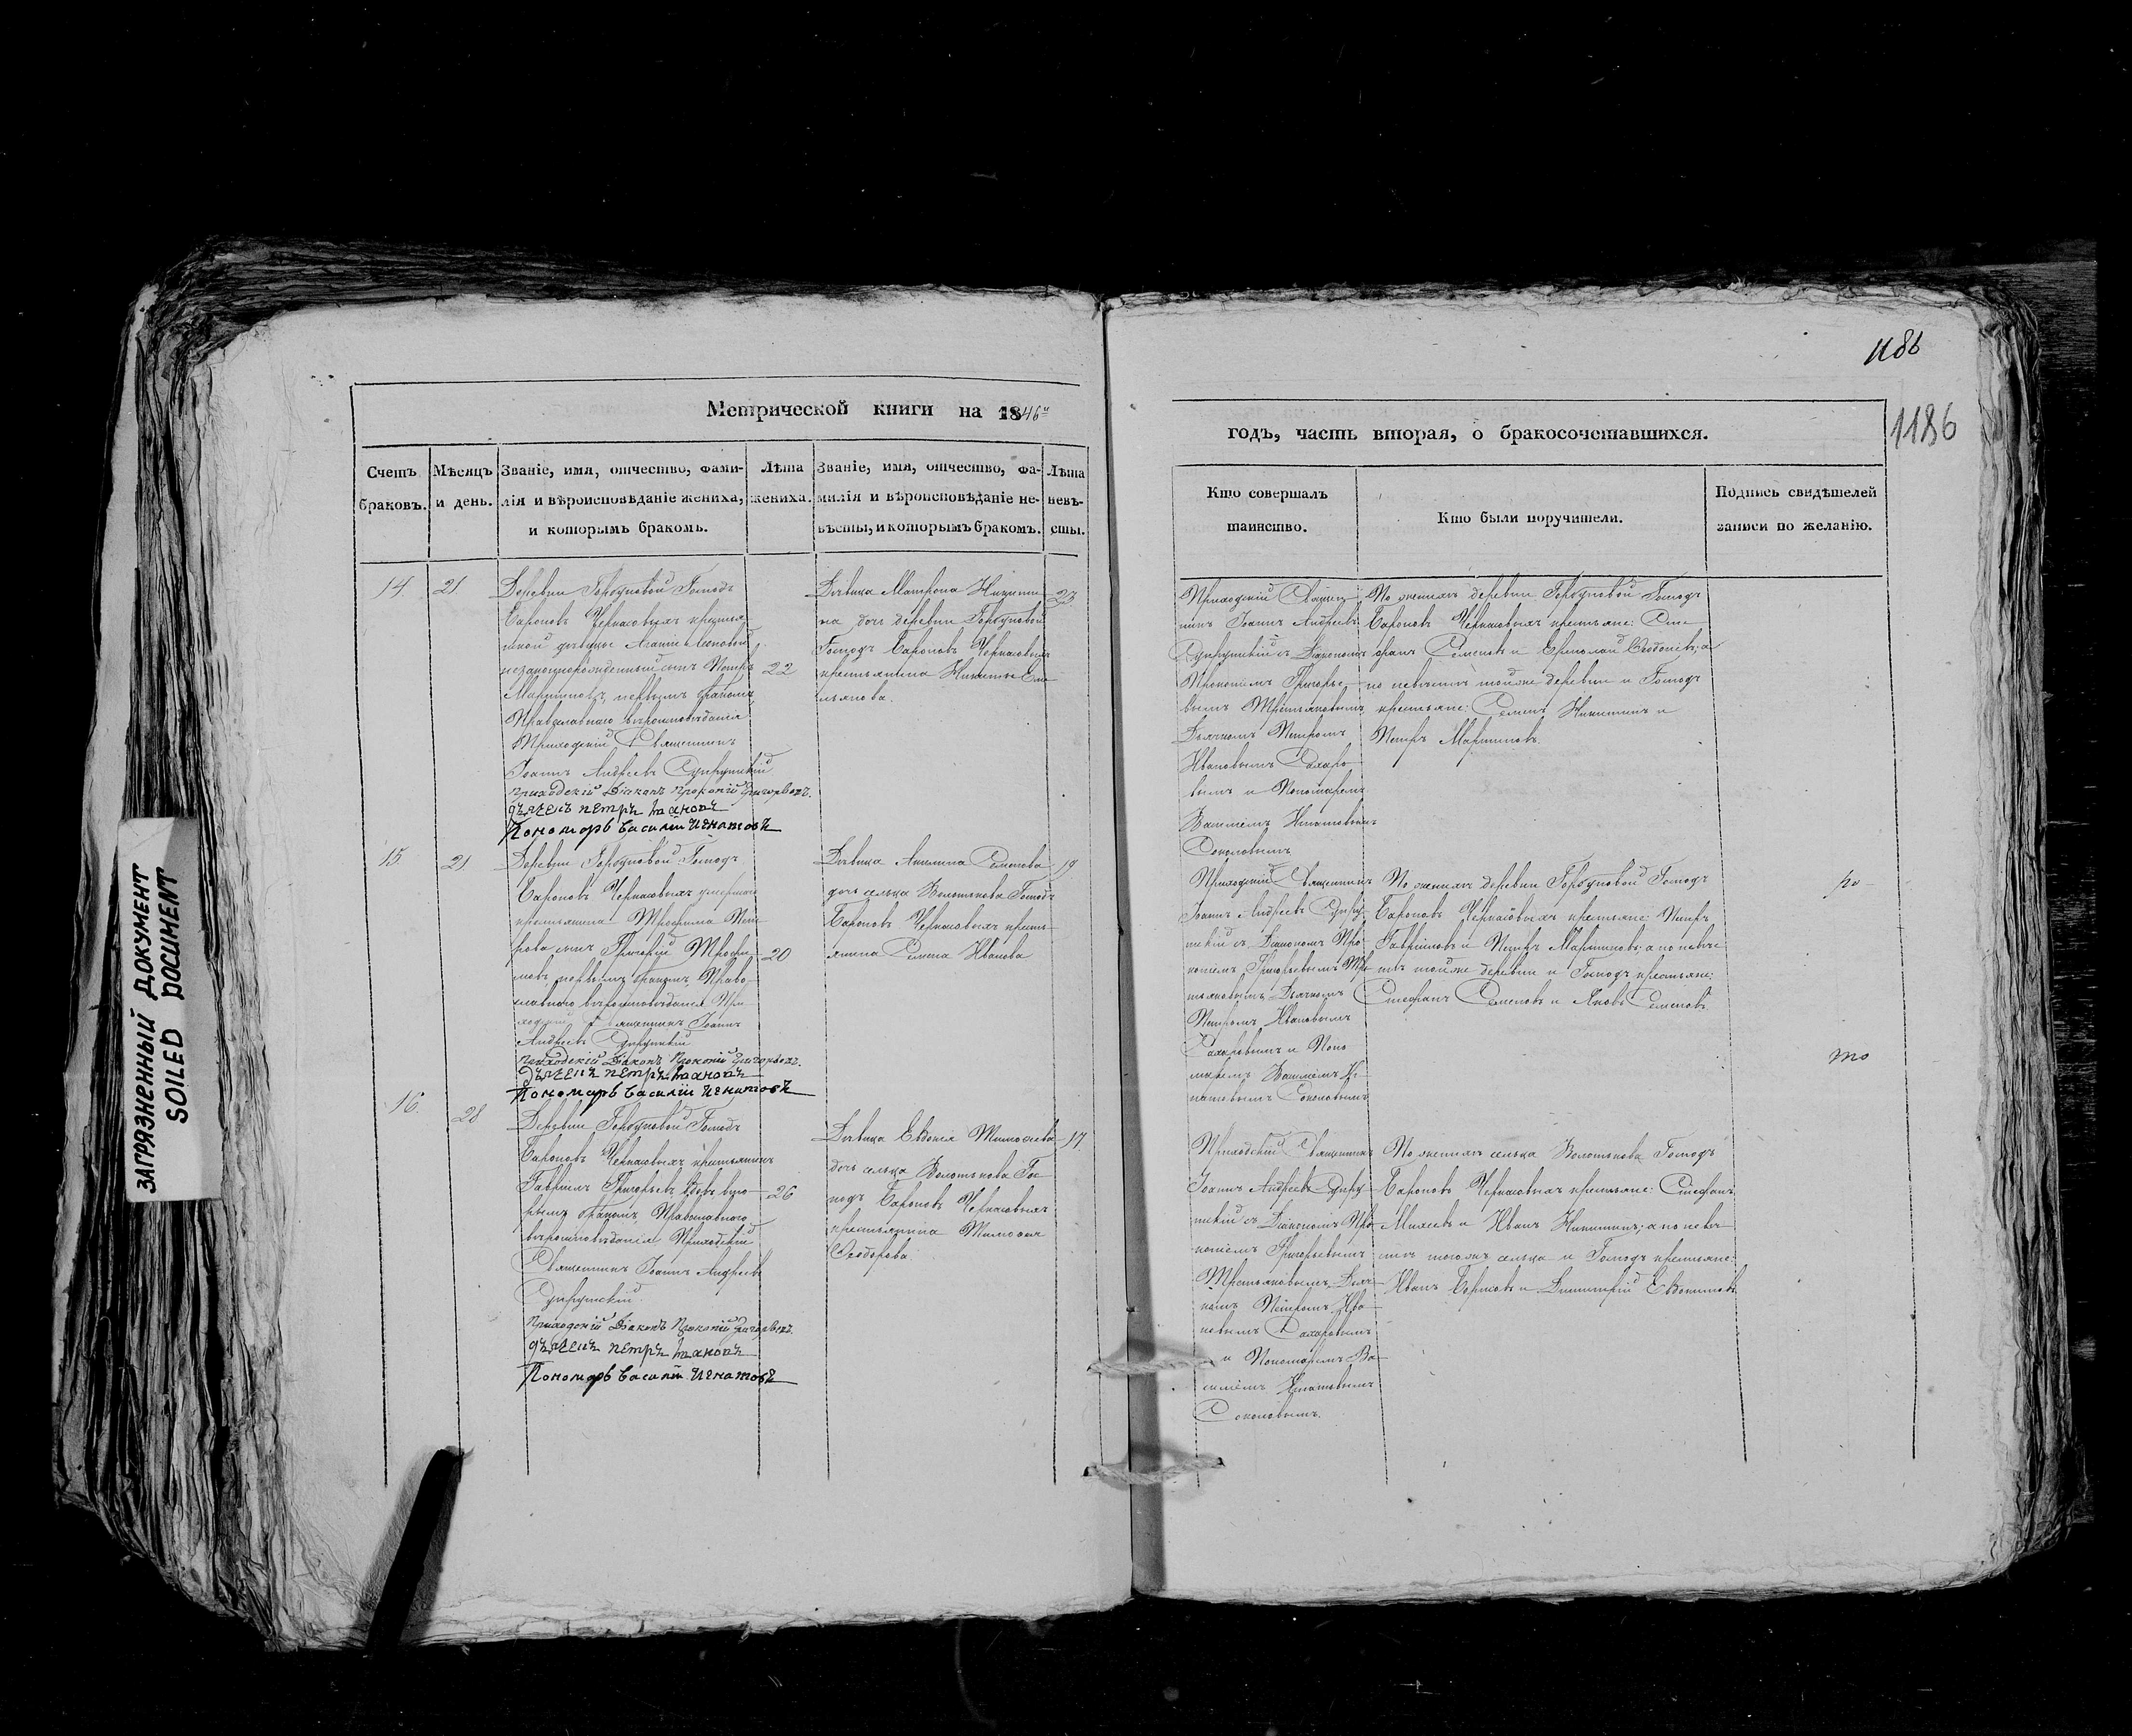 1186
Метрической книги на 1846й
годъ, часть вторая, о бракосочетавшихся.
1186
Счетъ браковъ.
Мѣсяцъ и день.
Званіе, имя, отчество, фами-
лія и вѣроисповѣданіе жениха,
и которымъ бракомъ.
Лѣта
жениха.
Званіе, имя, отчество, фа-
милія и вѣроисповѣданіе не-
вѣсты, и которымъ бракомъ.
Лѣта
невѣ-
сты.
Кто совершалъ
таинство.
Кто были поручители.
Подпись свидѣтелей
записи по желанію.
14.
21.
Деревни Горбуновой Господъ
Бароновъ Черкасовыхъ крестья
ской дѣвицы
незаконорожденный сынъ Петръ
Мартиновъ, первымъ бракомъ,
Православнаго вѣроисповѣданія
Приходскій Священникъ
Іоаннъ Андреевъ
Приходскій Діаконъ Прокопій Григорьевъ.
дьячекъ петръ Ивановъ
Пономарь Василій Игнатовъ
22
Дѣвица Матрона Никити
на дочь деревни Горбуновой
Господъ Бароновъ Черкасовыхъ
крестьянина Никиты Еме
льянова.
23
Приходскій Священ
никъ Іоаннъ Андреевъ
съ Діакономъ
Прокопіемъ Григорье
вымъ Третьяковымъ
Дьячкомъ Петромъ
Ивановымъ Сахаро
вымъ и Пономаремъ
Василіемъ Игнатовымъ
Соколовымъ
По женихѣ деревни Горбуновой Господъ
Бароновъ Черкасовыхъ крестьяне: Сте
фанъ Семеновъ и Ермолай Ѳедоровъ; а
по невѣстѣ тойже деревни и Господъ
крестьяне: Семенъ Никитинъ и
Петръ Мартиновъ.
15
21.
Деревни Горбуновой Господъ
Бароновъ Черкасовыхъ умершаго
крестьянина Трофима Пет
рова сынъ Григорій Трофи
мовъ, первымъ бракомъ, Право
славнаго вѣроисповѣданія При
ходскій Священникъ Іоаннъ
Андреевъ
Приходскій Діаконъ Прокопій Григорьевъ.
дьячекъ петръ Ивановъ
Пономарь Василій Игнатовъ
20
Дѣвица Акилина Семенова
дочь сельца Болотникова Господъ
Бароновъ Черкасовыхъ кресть
янина Семена Иванова
19
Приходскій Священникъ
Іоаннъ Андреевъ
съ Діакономъ Про
копіемъ Григорьевымъ Тре
тьяковымъ Дьячкомъ
Петромъ Ивановымъ
Сахаровымъ и Поно
маремъ Василіемъ Иг
натовымъ Соколовымъ
По женихѣ деревни Горбуновой Господъ
Бароновъ Черкасовыхъ крестьяне: Петръ
Гавріиловъ и Петръ Мартиновъ; а по невѣс
тѣ тойже деревни и Господъ крестьяне:
Стефанъ Семеновъ и Яковъ Семеновъ
16.
28
Деревни Горбуновой Господъ
Бароновъ Черкасовыхъ крестьянинъ
Гавріилъ Григорьевъ вдовъ вто
рымъ бракомъ, Православнаго
вѣроисповѣданія Приходскій
Священникъ Іоаннъ Андреевъ
Приходскій Діаконъ Прокопій Григорьевъ.
дьячекъ петръ Ивановъ
Пономарь Василій Игнатовъ
26
Дѣвица Евдокія Тимофеева
дочь сельца Болотникова Гос
подъ Бароновъ Черкасовыхъ
крестьянина Тимофея
Ѳеодорова
17.
Приходскій Священникъ
Іоаннъ Андреевъ
съ Діакономъ Про
копіемъ Григорьевымъ
Третьяковымъ Дьяч
комъ Петромъ Ива
новымъ Сахаровымъ
и Пономаремъ Ва
силіемъ Игнатовымъ
Соколовымъ.
По женихѣ сельца Болотникова Господъ
Бароновъ Черкасовыхъ крестьяне: Стефанъ
Михеевъ и Иванъ Никитинъ; а по невѣс
тѣ тогоже сельца и Господъ крестьяне:
Иванъ Борисовъ и Димитрій Евдокимовъ
ЗАГРЯЗНЕННЫЙ ДОКУМЕНТ
SOILED DOCUMENT